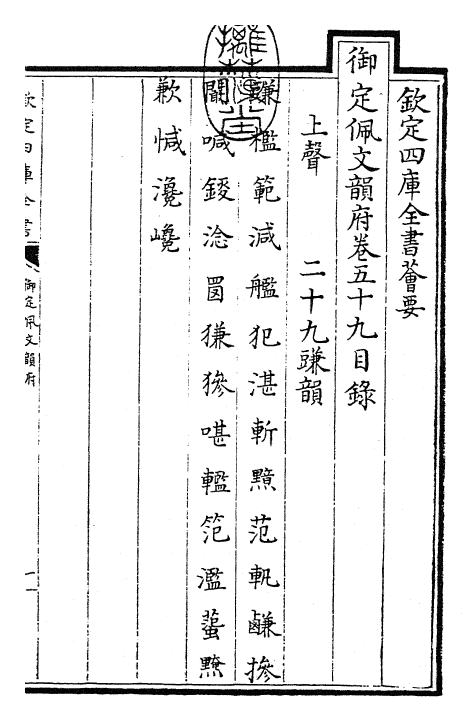 欽定四庫全書薈要
御定佩文韻府卷五十九目錄
上聲 二十九豏韻
豏檻範減艦犯湛斬黯范軓鹻摻
喊鋄淰轞笵濫
歉瀺巉
欽定四庫全書
御定佩文韻府